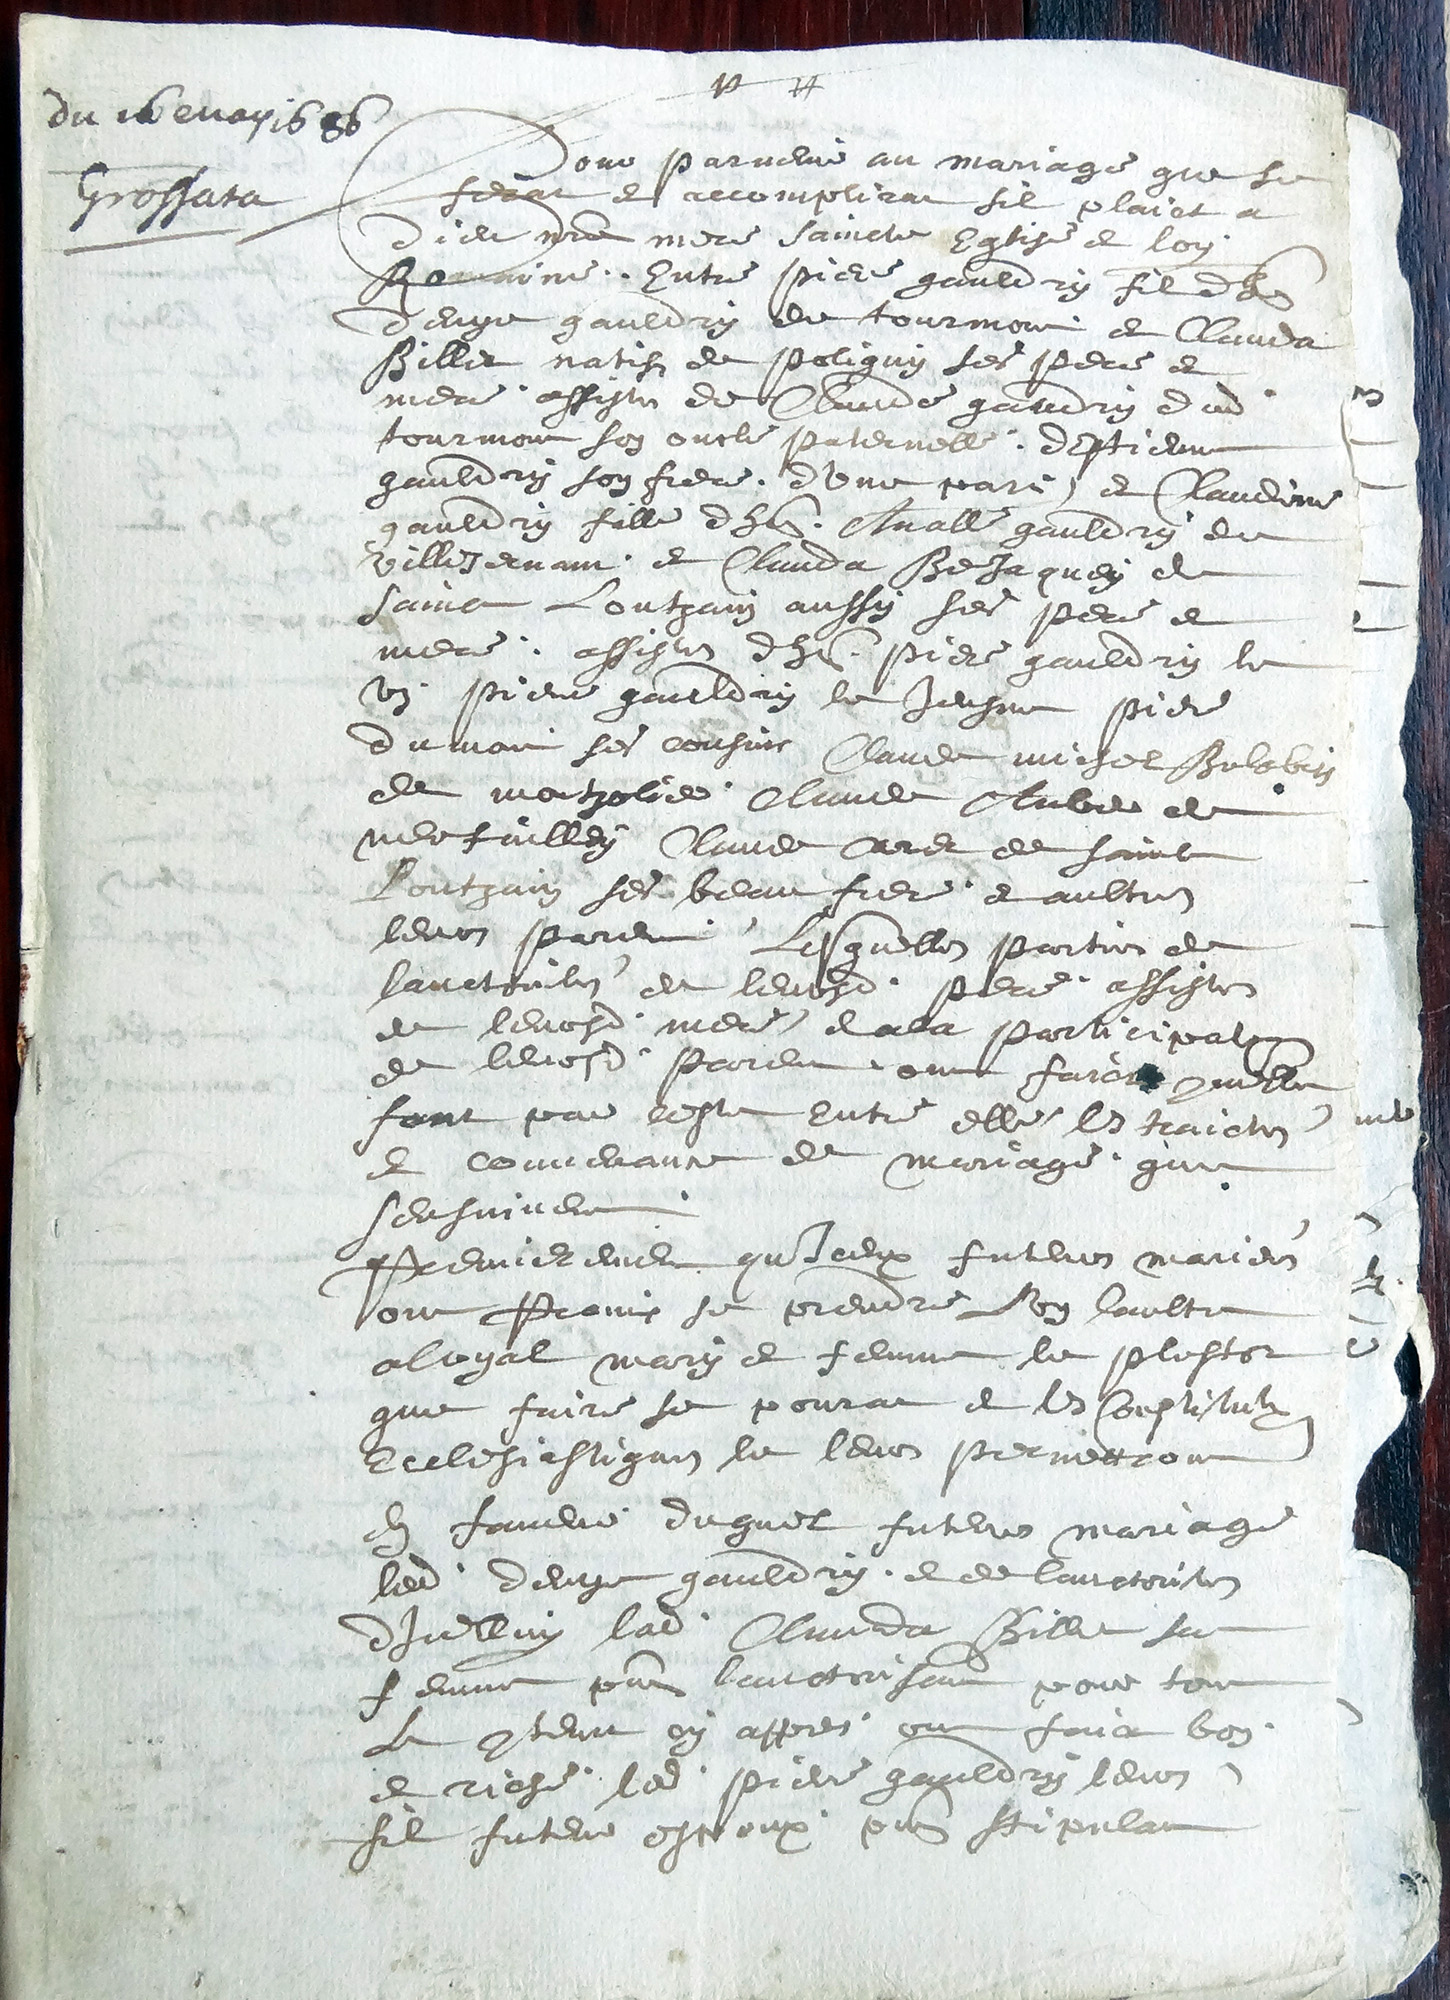 du 16 may 1686
Grossata
Pour parvenir au mariage que se
ferat et accomplirat sil plaict a
dieu nre mere saincte Eglise et loy
Romaine.. Entre piere gauldry fil dh.
denys gauldry de tourmont et Clauda
Billet natifz de poligny ses pere et
mere assistez de Claude gauldry dud.
tourmont son oncle paternelle. destienne
gauldry son frere. dune part, et Claudine
gauldry fille dh. Anatolle gauldry de
villersernam et Clauda de
sainct Loutzain aussy ses pere et
mere. assistez dh. piere gauldry le
vi. piere gauldry le Jeusne piere
dumont ses cousins Claude michel
de Claude Aubee de
Claude de sainct
Loutzain ses beau frere et aultres
leurs parent Lesquelles parties de
lauctorites de leursd. pere assistez
de leursd. mere, et a la participation
de leursd. parent ont faict
font par ceste Entre elle les traictez
et convenance de mariage que
sensuivent
Premierement qu'Iceux futeurs mariez
ont Promis se prendre Lon laultre
a loyal mary et femme le plustot
que faire se pourat et les
Ecclesiastiques le leurs permettront
En faveur duquel futeur mariage
led. denys gauldry. et de lauctorites
dIcelluy lad. Clauda Billet sa
femme pnt lauctorisant pour tout
Le cy appres ont faict bon.
et riche. led. piere gauldry leurs
fil futeur espoux pnt stipulant